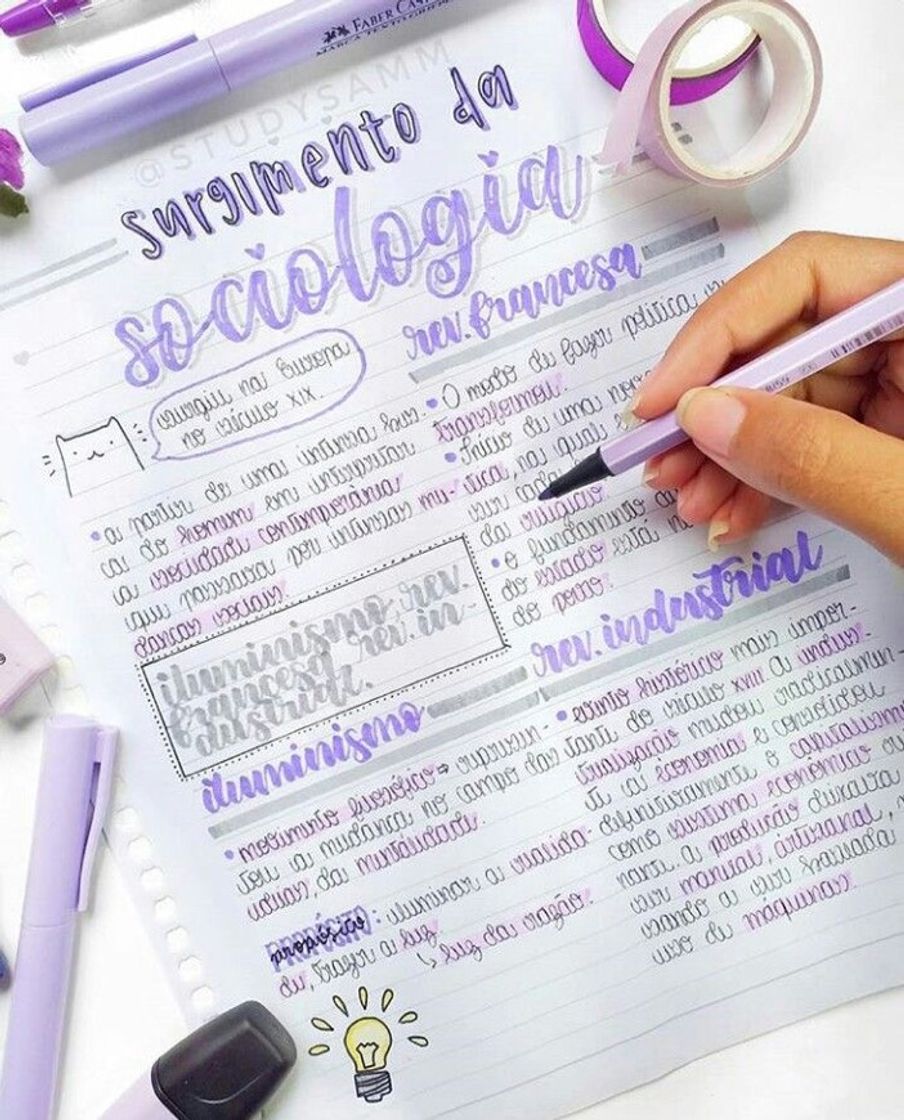 FABER CAST
MARCA TEXTO GRIFF
@STUDYSAMM
surgimento da
sociologia
surgiu na Europa
no século XIX.
• a partir de uma intensa bus-
ca do homem em interpretar
a sociedade contemporânea
que passava por intensas mu-
danças sociais.
iluminismo, rev.
francesa, rev. in-
dustrial.
iluminismo
• movimento filosófico → represen-
tou a mudança no campo das
ideias, da mentalidade.
propósito: iluminar a realida-
de, trazer a luz
↳ luz da razão.
rev. francesa
• O modo de fazer política
transformou.
• Início de uma
ética, na qual
ser
da religião
• o fundamento
do estado está
do povo.
rev. industrial
• evento histórico mais impor-
tante do século XVIII. A indus-
trialização mudou radicalmen-
te a economia e consolidou
definitivamente o capitalismo
como sistema econômico
nante. a produção deixara
ser manual, artesanal,
sando a ser baseada
uso de máquinas.